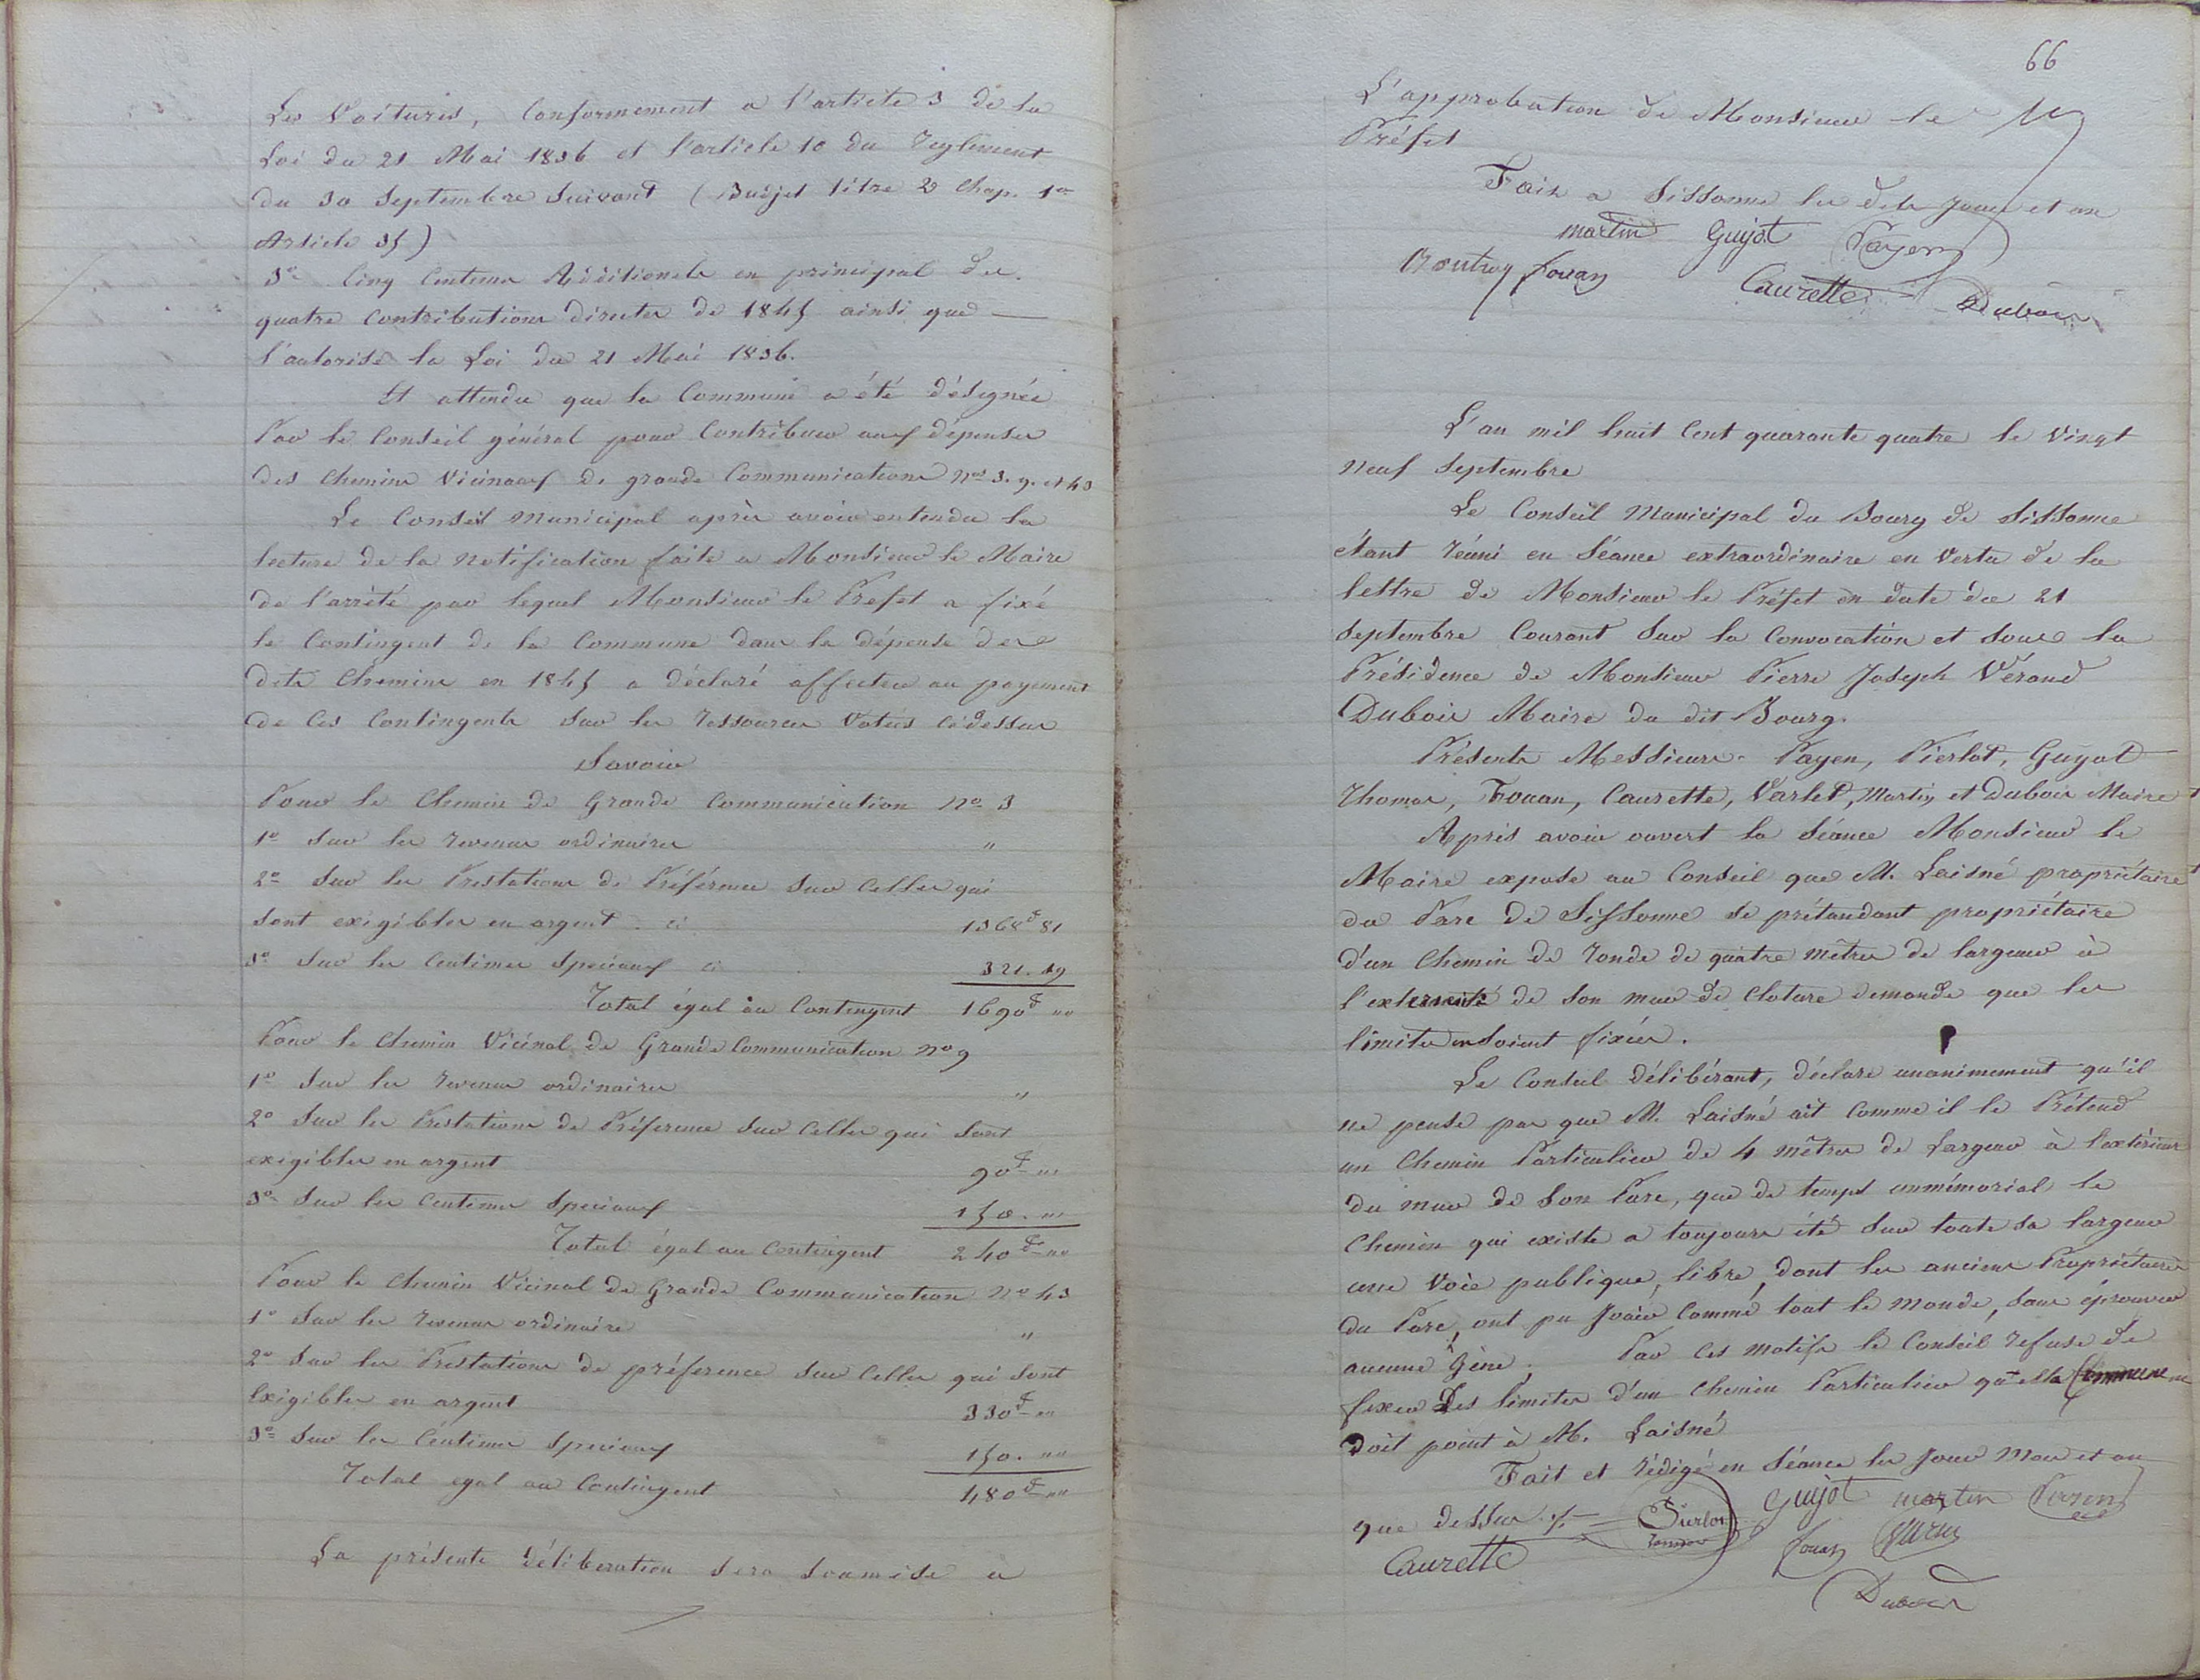 Les Voitures, Conformement a l'article 3 de la
Loi du 21 Mai 1836 et l'article 10 du Reglement
du 30 Septembre Suivant (Budjet titre 2 Chap. 1er
Article 35)
3o Cinq Centimes Additionels en principal des
quatre Contributions directes de 1845 ainsi que
l'autorise la Loi du 21 Mai 1836.
Et attendu que la Commune a été désignée
Par le Conseil général pour Contribuer aux dépenses
des Chemins Vicinaux de grande Communication Nos 3. 9. et 43
Le Conseil Municipal après avoir entendu la
lecture de la Notification faite a Monsieur le Maire
de l'arrêté par lequel Monsieur le Préfet a fixé
le Contingent de la Commune dans la dépense des
dits Chemins en 1845 a déclaré affecter au payement
de Ces Contingents Sur les ressources Votées ci dessus
Savoir
Pour le Chemin de Grande Communication No 3
1o Sur les revenus ordinaires "
2o Sur les Prestations de Préférence Sur Celles qui
Sont exigibles en argent ci 1368f 81
3o Sur les Centimes Speciaux ci 321. 19
Total égal au Contingent 1690f ""
Pour le Chemin Vicinal de Grande Communication No 9
1o Sur les revenus ordinaires "
2o Sur les Prestations de Préference Sur Celles qui Sont
exigibles en argent 90f ""
3o Sur les Centimes Speciaux 150. ""
Total égal au Contingent 240f ""
Pour le Chemin Vicinal de Grande Communication No 43
1o Sur les Revenus ordinaire "
2o Sur les Prestations de préference Sur Celles qui Sont
Exigibles en argent 330f ""
3o Sur les Centimes Speciaux 150. ""
Total egal au Contingent 480f ""
La présente délibération Sera Soumise a
66
L'approbation de Monsieur le
Préfet
Fait a Sissonne les dits Jour et an
martin Guyot Payen
Fouan Caurette Dubois
L'an mil huit Cent quarante quatre le Vingt
Neuf Septembre
Le Conseil Municipal du Bourg de Sissonne
étant réuni en Séance extraordinaire en Vertu de la
lettre de Monsieur le Préfet en date du 21
Septembre Courant Sur la Convocation et Sous la
Présidence de Monsieur Pierre Joseph Vérand
Dubois Maire du dit Bourg.
Présents Messieurs Payen, Pierlot, Guyot
Thomas, Fouan, Caurette, Varlet, Martin et Dubois Maire
Après avoir ouvert la Séance Monsieur le
Maire expose au Conseil que M. Laisné propriétaire
du Parc de Sissonne Se prétendant propriétaire
d'un Chemin de ronde de quatre mètres de largeur à
l'extermité de Son mur de Cloture demande que les
limites en Soient fixées.
Le Conseil délibérant, déclare unanimement qu'il
ne pense pas que M. Laisné ait Comme il le Prétend
un Chemin Particulier de 4 mètres de Largeur à l'extérieur
du mur de Son Parc, que de temps immémorial le
Chemin qui existe a toujours été Sur toute Sa largeur
une Voie publique, libre, dont les anciens Propriétaires
du Parc, ont pu Jouir Comme tout le Monde, Sans éprouver
aucune Gène. Par Ces Motifs le Conseil refuse de
fixer Les limites d'un Chemin Particulier que la Commune ne
Doit point à M. Laisné
Fait et rédigé en Séance les Jour Mois et an
que dessus
Guyot martin Payen
Caurette Fouan
Dubois